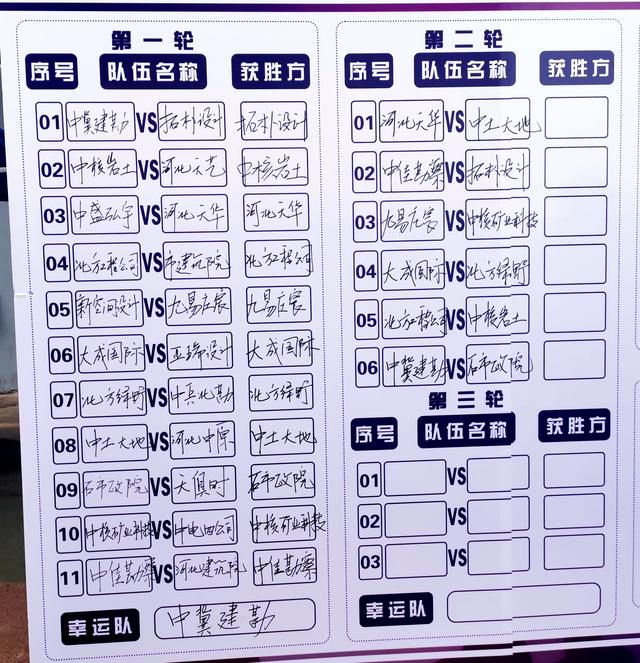 第一轮
序号 队伍名称 获胜方
01 中冀建勘 VS 拓朴设计 拓朴设计
02 中核岩土 VS 河北天艺 中核岩土
03 中盛弘宇 VS 河北天华 河北天华
04 北方工程公司 VS 市建筑院 北方工程公司
05 新空间设计 VS 九易庄宸 九易庄宸
06 大成国际 VS 亚瑞设计 大成国际
07 北方绿野 VS 中真化勘 北方绿野
08 中土大地 VS 河北中原 中土大地
09 石市政院 VS 天俱时 石市政院
10 中核矿业科技 VS 中电四公司 中核矿业科技
11 中佳勘察 VS 河北建筑院 中佳勘察
幸运队 中冀建勘
第二轮
序号 队伍名称 获胜方
01 河北天华 VS 中土大地
02 中佳勘察 VS 拓朴设计
03 九易庄宸 VS 中核矿业科技
04 大成国际 VS 北方绿野
05 北方工程公司 VS 中核岩土
06 中冀建勘 VS 石市政院
第三轮
序号 队伍名称 获胜方
01 VS
02 VS
03 VS
幸运队